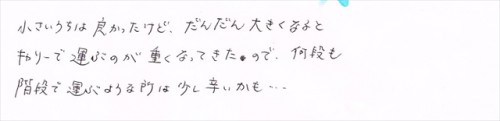 小さいうちは良かったけど、だんだん大きくなると
キャリーで運ぶのが重くなってきた。ので、何段も
階段で運ぶような所は少し辛いかも…